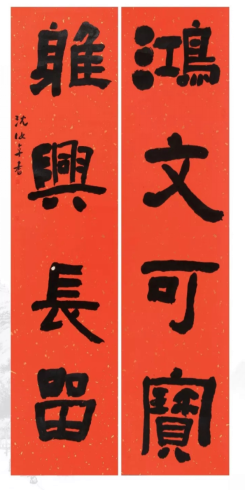 鴻文可寶
雅興長留
沈書